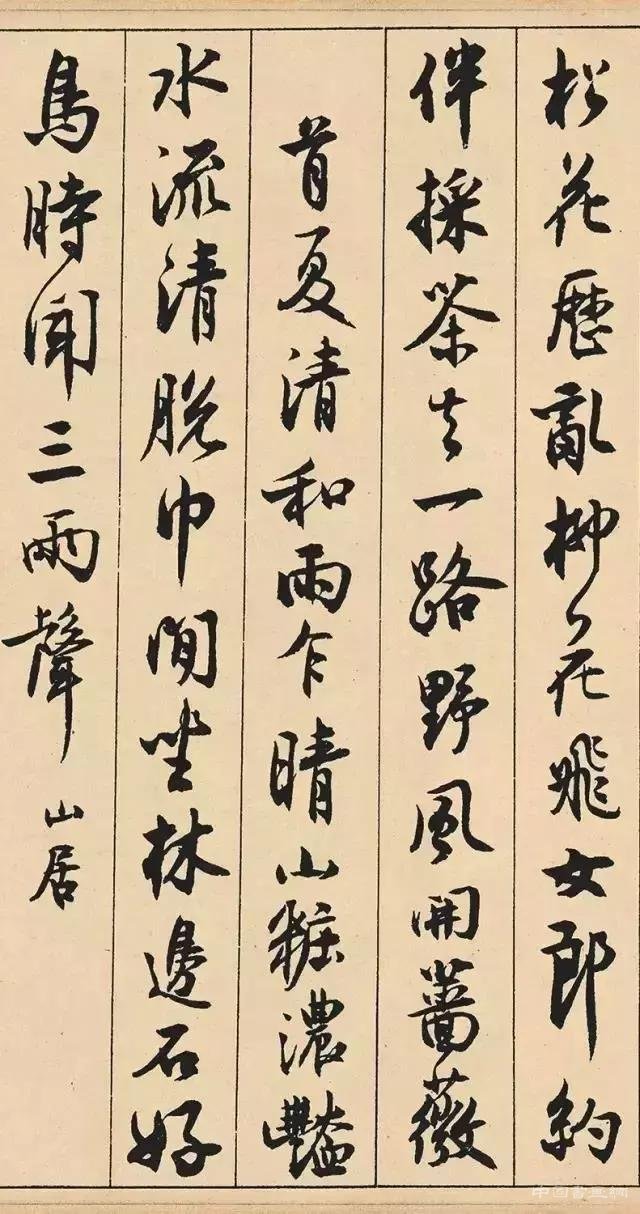 松花歷亂柳花飛女郎約
伴採茶去一路野風開薔薇
首夏清和雨乍晴山粧濃豔
水流清脫巾閒坐林邊石好
鳥時聞三兩聲 山居
中国書畫網